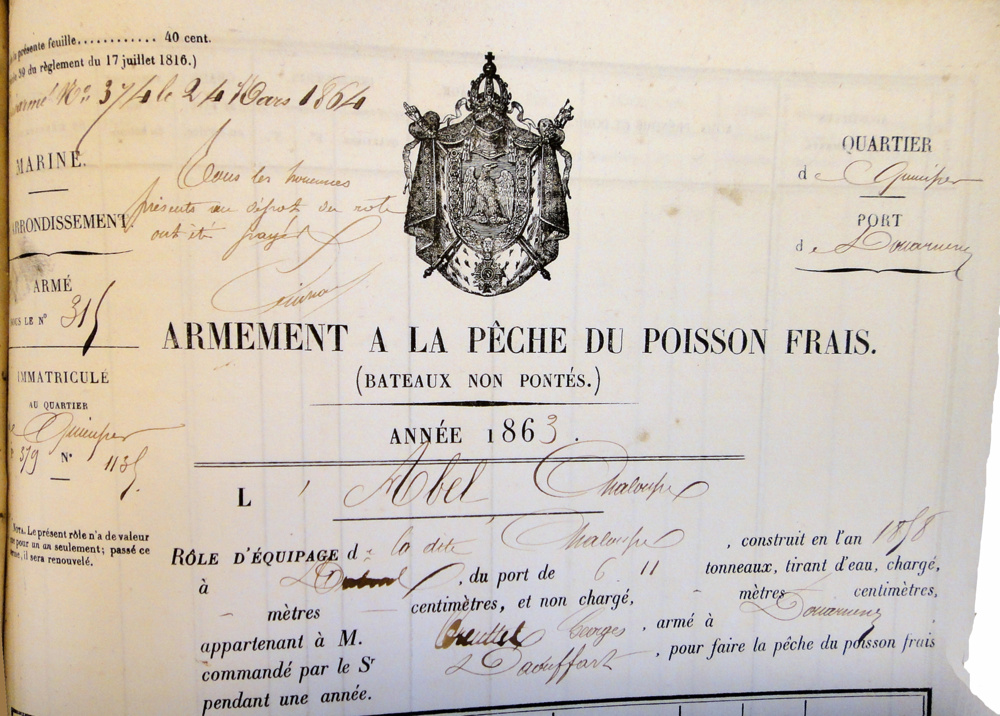 présente feuille............ 40 cent.
39 du règlement du 17 juillet 1816.)
Nº 374 le 24 Mars 1864
MARINE.
Tous les hommes
présents au dépot du role
ont été payés
ARRONDISSEMENT
ARMÉ
SOUS LE Nº 315
IMMATRICULÉ
AU QUARTIER
Quimper
379 Nº 1135
NOTA. Le présent rôle n'a de valeur
que pour un an seulement; passé ce
terme, il sera renouvelé.
QUARTIER
de Quimper
PORT
de Douarnenez
ARMEMENT A LA PÊCHE DU POISSON FRAIS.
(BATEAUX NON PONTÉS.)
ANNÉE 1863.
L' Abel Chaloupe
RÔLE D'ÉQUIPAGE de la dite Chaloupe, construit en l'an 1858
à , du port de 6 11 tonneaux, tirant d'eau, chargé,
mètres centimètres, et non chargé, mètres centimètres,
appartenant à M. Georges, armé à Douarnenez
commandé par le Sr , pour faire la pêche du poisson frais
pendant une année.